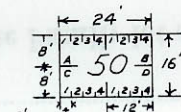 24'
1 2 3 4 1 2 3 4
8' A 50 B 16'
8' C D
1 2 3 4 1 2 3 4
12'